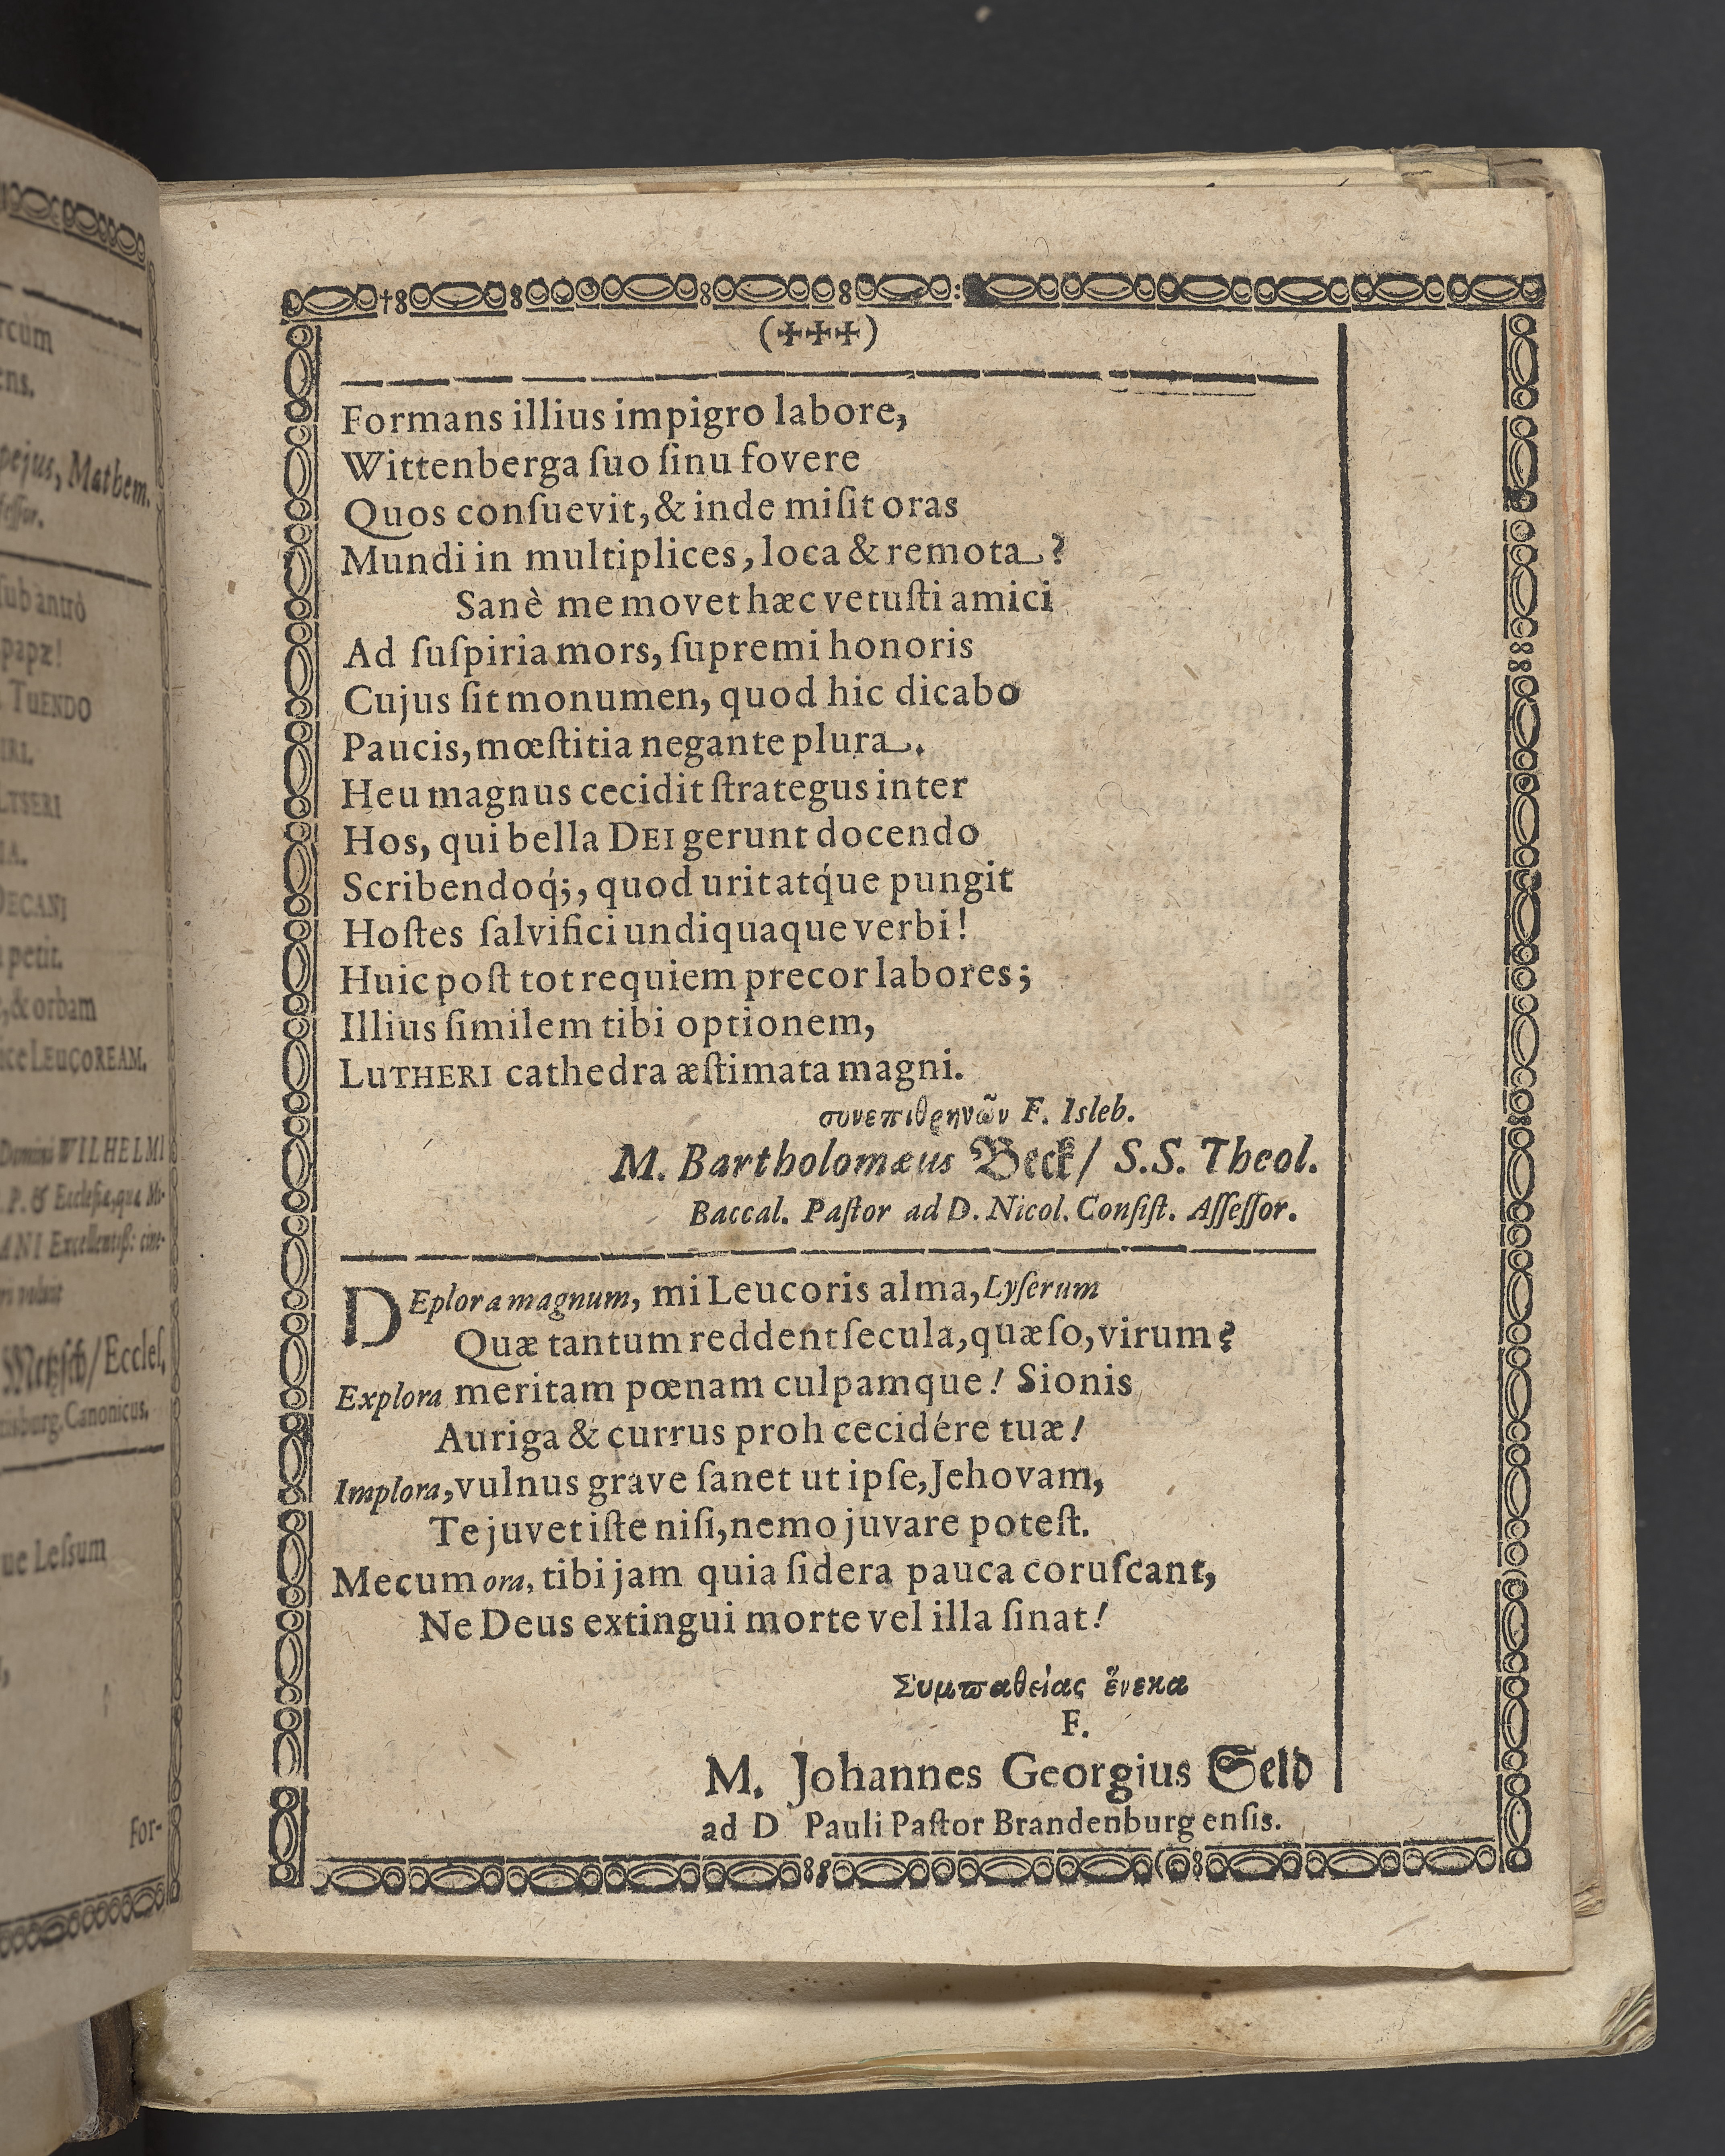 rcùm
ens.
pejus, Mathem.
feſſor.
ſub antrò
papæ!
TUENDO
IRI.
LTSERI
IA.
DECANI
petit.
,& orbam
ice LEUCOREAM.
Domini WILHELMI
P. & Eccleſiæ, quæ
ANI Excellentiſſ:
Metzſch/ Eccleſ.
risburg. Canonicus.
ue Leſsum
For-
(✠✠✠)
Formans illius impigro labore,
Wittenberga ſuo ſinu fovere
Quos conſuevit, & inde miſit oras
Mundi in multiplices, loca & remota?
Sanè me movet hæc vetuſti amici
Ad ſuſpiria mors, ſupremi honoris
Cujus ſit monumen, quod hic dicabo
Paucis, mœſtitia negante plura.
Heu magnus cecidit ſtrategus inter
Hos, qui bella DEI gerunt docendo
Scribendoq́;, quod urit atq́ue pungit
Hoſtes ſalvifici undiquaque verbi!
Huic poſt tot requiem precor labores;
Illius ſimilem tibi optionem,
LUTHERI cathedra æſtimata magni.
συνεπιθρηνῶν F. Isleb.
M. Bartholomæus Beck/ S.S. Theol.
Baccal. Paſtor ad D. Nicol. Conſiſt. Aſſeſſor.
DEplora magnum, mi Leucoris alma, Lyſerum
Quæ tantum reddent ſecula, quæſo, virum?
Explora meritam pœnam culpamq̀ue! Sionis
Auriga & currus proh cecidére tuæ!
Implora, vulnus grave ſanet ut ipſe, Jehovam,
Te juvet iſte niſi, nemo juvare poteſt.
Mecum ora, tibi jam quia ſidera pauca coruſcant,
Ne Deus extingui morte vel illa ſinat!
Συμπαθείας ἕνεκα
F.
M. Johannes Georgius Seld
ad D Pauli Paſtor Brandenburgenſis.